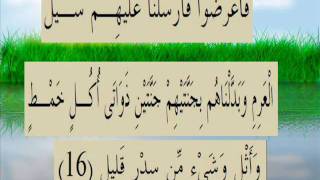 فَأَعْرَضُوا فَأَرْسَلْنَا عَلَيْهِمْ سَيْلَ
الْعَرِمِ وَبَدَّلْنَاهُم بِجَنَّتَيْهِمْ جَنَّتَيْنِ ذَوَاتَى أُكُلٍ خَمْطٍ
وَأَثْلٍ وَشَيْءٍ مِّن سِدْرٍ قَلِيلٍ (16)